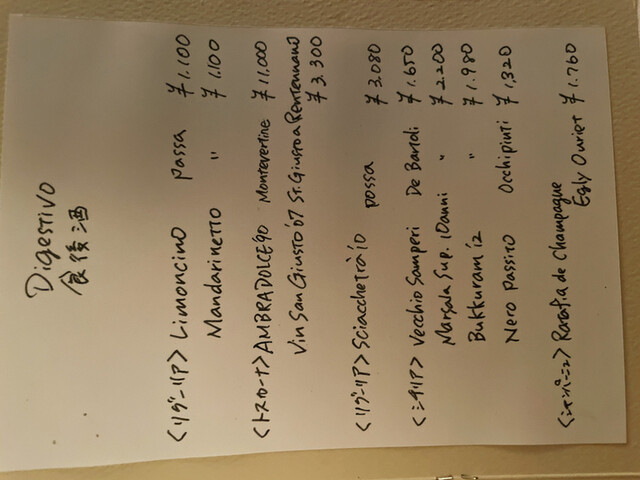 Digestivo
食後酒
<リグーリア> Limoncino possa ¥1.100
Mandarinetto 〃 ¥1.100
<トスカーナ> AMBRADOLCE'90 Montevertine ¥11,000
Vin San Giusto '07 St.Giusto a Rentennano
¥3.300
<リグーリア> Sciacchetrà '10 possa ¥3.080
<シチリア> Vecchio Samperi De Bartoli ¥1.650
Marsala Sup. 10anni 〃 ¥2.200
Bukkuram '12 〃 ¥1.980
Nero Passito Occhipinti ¥1,320
<シャンパーニュ> Ratafia de Champagne
Egly Ouriet ¥1.760